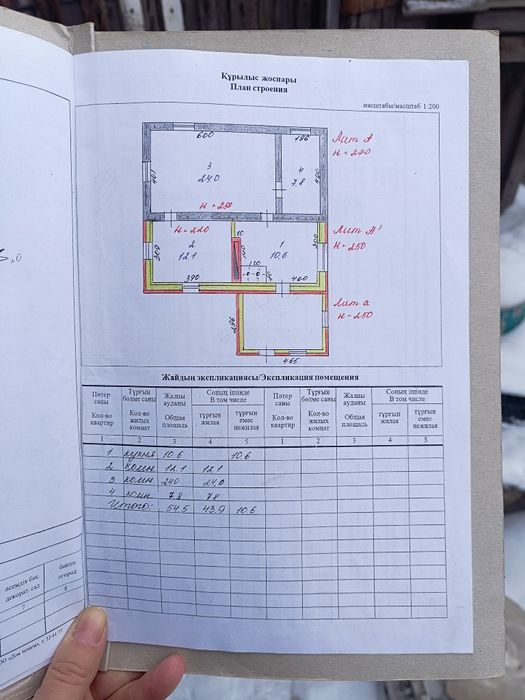 Құрылыс жоспары
План строения
масштабы/масштаб 1:200
600
196
Лит А
н = 240
3
24,0
4
7,8
401
400
н = 250
н = 220
80
Лит А'
н = 250
2
12,1
1
10,6
309
140
300
120
390
400
Лит а
н = 250
296
465
Жайдың экспликациясы/Экспликация помещения
Пәтер саны
Кол-во квартир
Тұрғын бөлме саны
Кол-во жилых комнат
Жалпы ауданы
Общая площадь
Соның ішінде
В том числе
тұрғын жилая
тұрғын емес нежилая
Пәтер саны
Кол-во квартир
Тұрғын бөлме саны
Кол-во жилых комнат
Жалпы ауданы
Общая площадь
Соның ішінде
В том числе
тұрғын жилая
тұрғын емес нежилая
1 2 3 4 5 1 2 3 4 5
1 кухня 10,6 10,6
2 комн 12,1 12,1
3 комн 24,0 24,0
4 комн 7,8 7,8
Итого: 54,5 43,9 10,6
өсемдік бақ
декорат. сад
бақша
огород
7 8